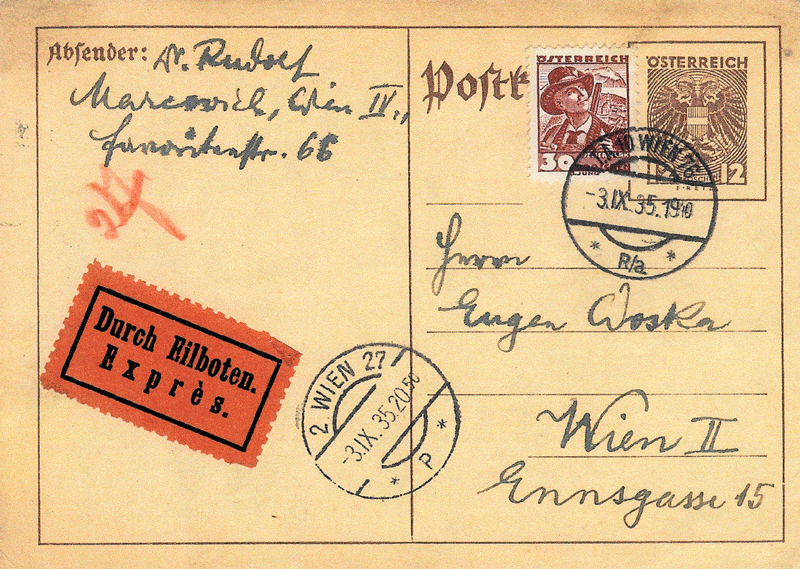 Absender: Dr. Rudolf
Marcovich, Wien IV.,
Favoritenstr. 66
Postk
ÖSTERREICH
30
ÖSTERREICH
12
WIEN 76
-3.IX.35.19
* R/a. *
Durch Eilboten.
Exprès.
2 WIEN 27
-3.IX.35.20.50
* P *
Herrn
Eugen Woska
Wien II
Ennsgasse 15